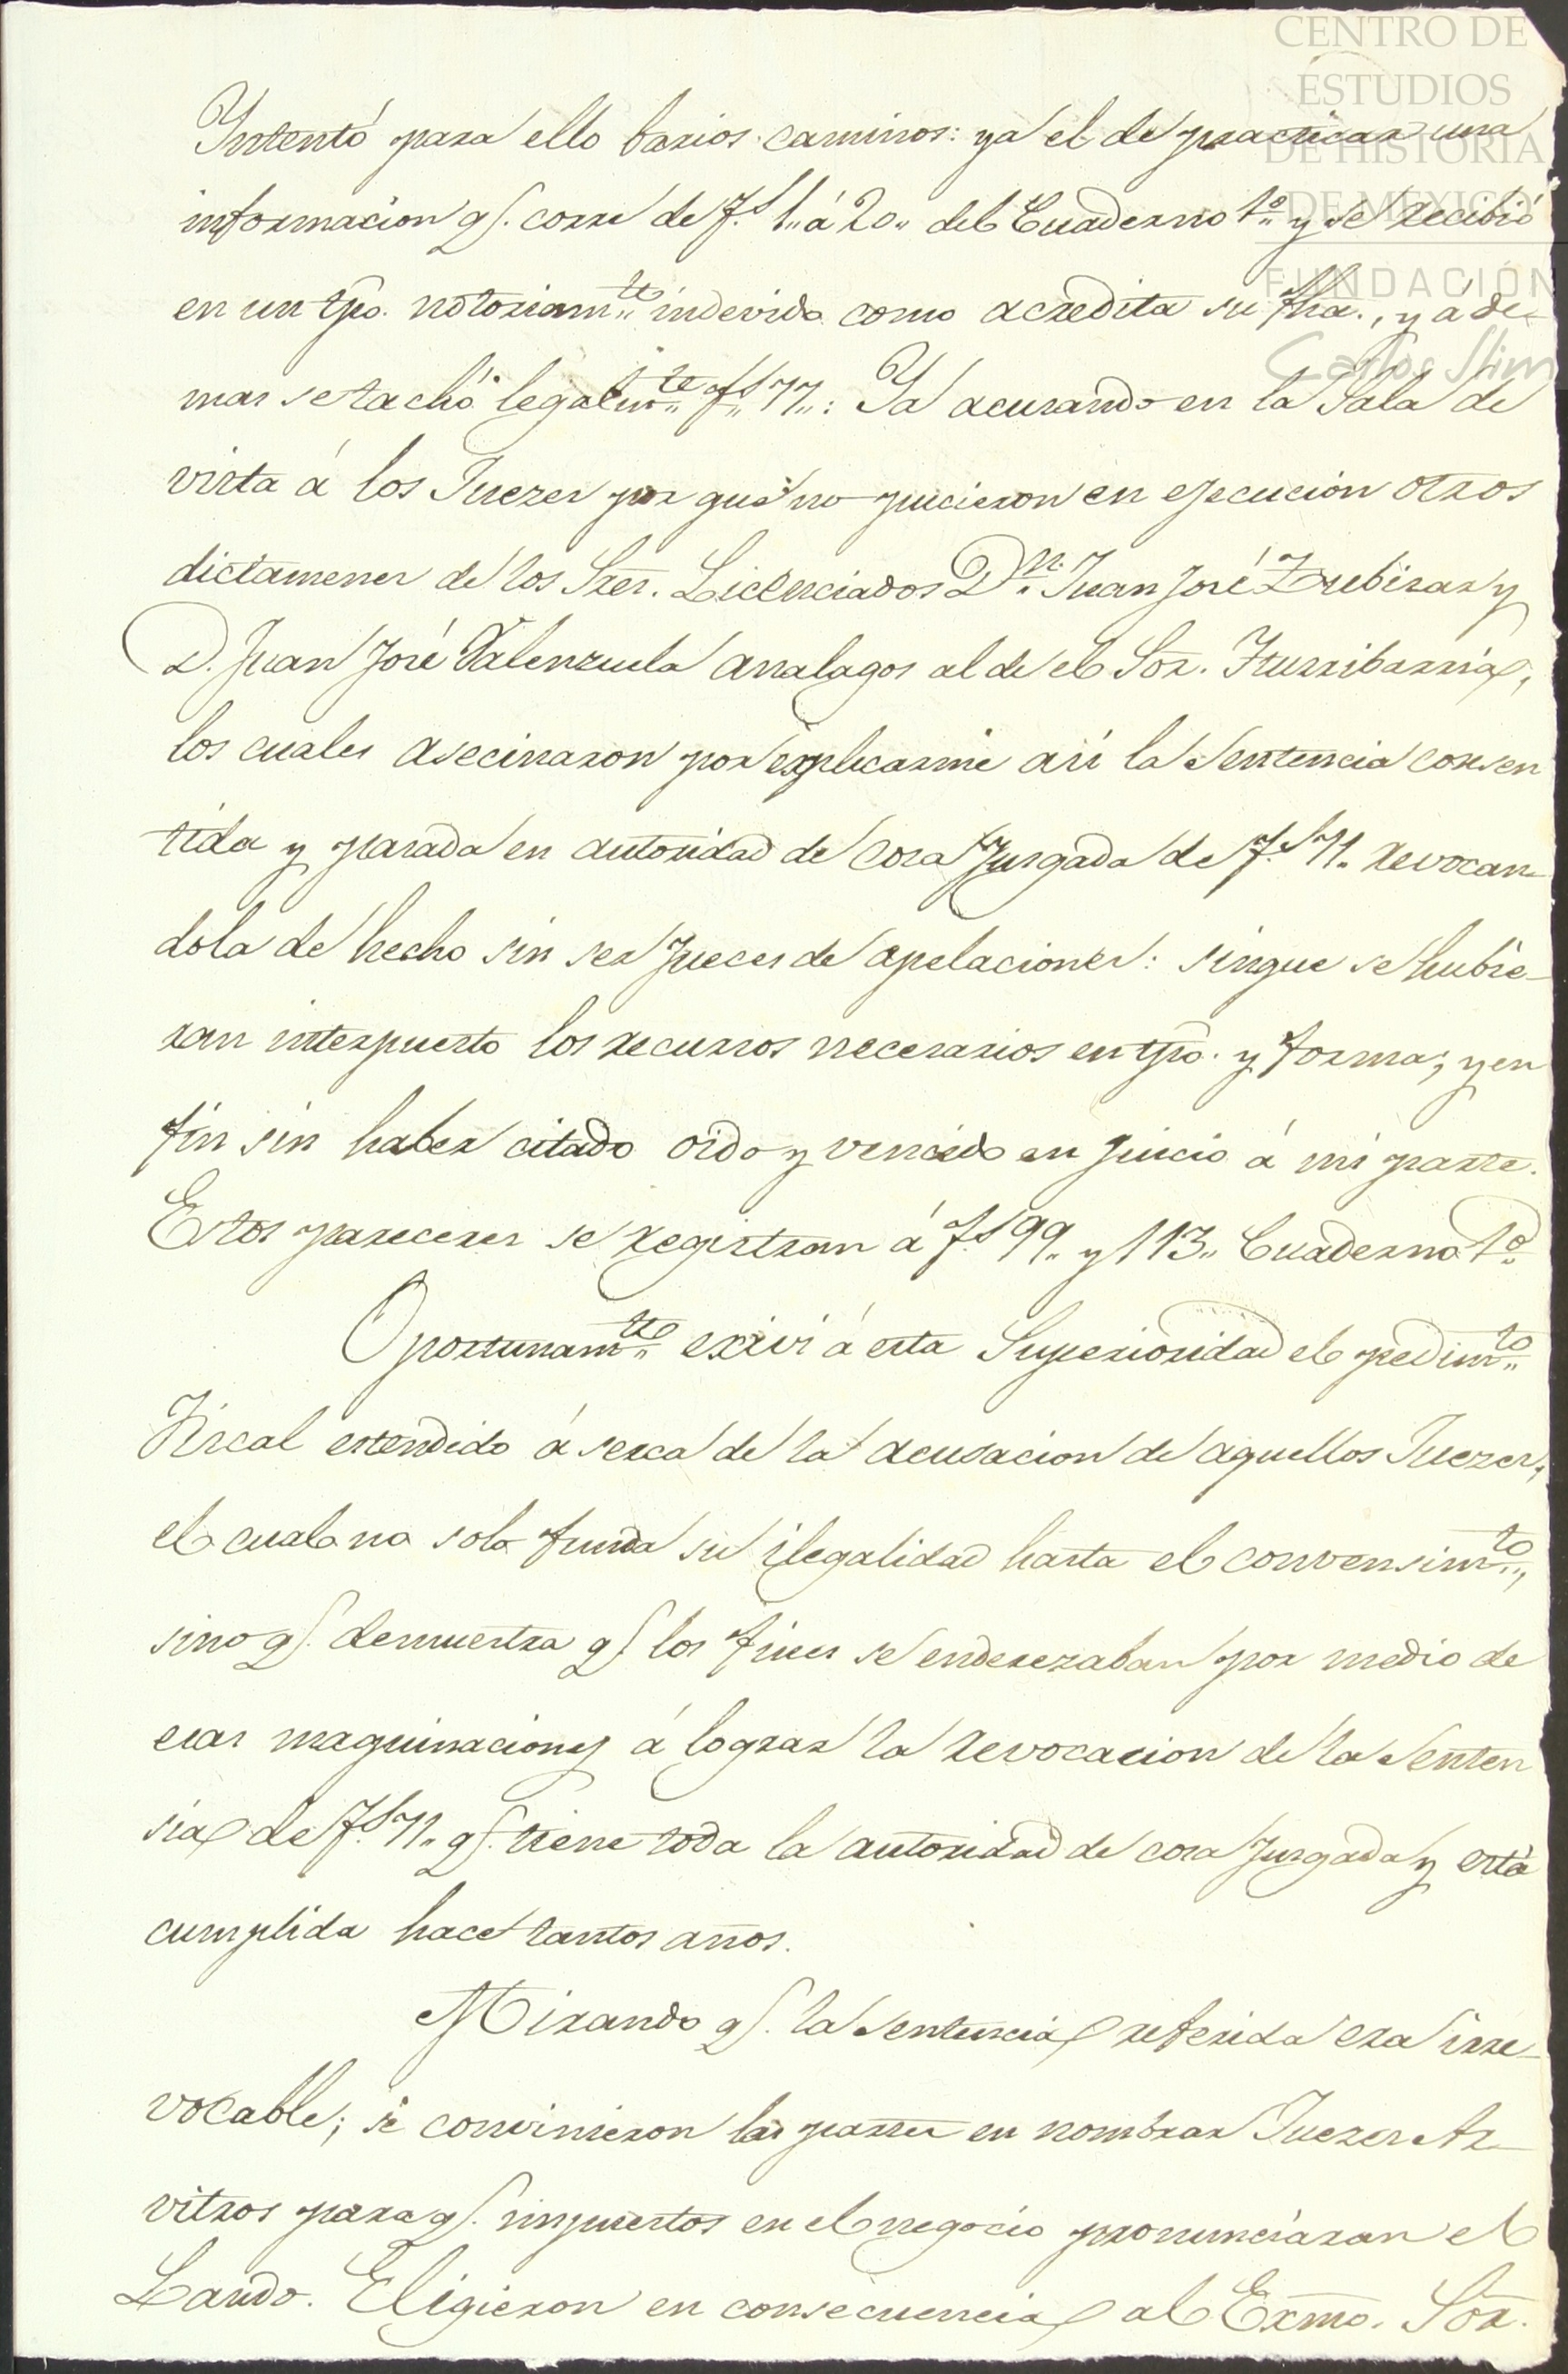 CENTRO DE
ESTUDIOS
DE HISTORIA
DE MEXICO
FUNDACIÓN
Carlos Slim
Yntentó para ello barios caminos: ya el de practicar una
informacion q. corre de f.s 1,, á 20,, del Cuaderno 1º,, y se recibió
en un tpo. notoriam.te indevido como acredita su fha., y áde-
mas se tachó legalm.te f.s 77,,: Ya acusando en la Sala de
vista á los Juezes por que no pucieron en ejecucion otros
dictamenes de los Sres. Licenciados D.n Juan José Zubirar y
D. Juan José Valenzuela analagos al de el Sor. Yturribarria,
los cuales asecinaron por esplicarme asi la Sentencia consen
tida y pasada en autoridad de Cosa Jusgada de f.s 71. revocan-
dola de hecho sin ser Jueces de apelaciones: sinque se hubie-
ran interpuesto los recursos necesarios en tpo. y forma; y en
fin sin haber citado oido y vencido en juicio á mi parte.
Estos pareceres se registran á f.s 99,, y 113,, Cuaderno 1º
Oportunam.te exivi á esta Superioridad el pedim.to
Fiscal estendido á serca de la acusacion de aquellos Juezes,
el cual no solo funda su ilegalidad hasta el convensim.to,
sino q. demuestra q. los fines se enderezaban por medio de
esas maquinaciones á lograr la revocacion de la Senten
sia de f.s 71,, q. tiene toda la autoridad de cosa Jusgada y está
cumplida hace tantos años.
Mirando q. la Sentencia referida era irre-
vocable; se convinieron las partes en nombrar Juezes Ar-
vitros para q. impuestos en el negocio pronunciaran el
Laudo. Eligieron en consecuencia al Exmo. Sor.